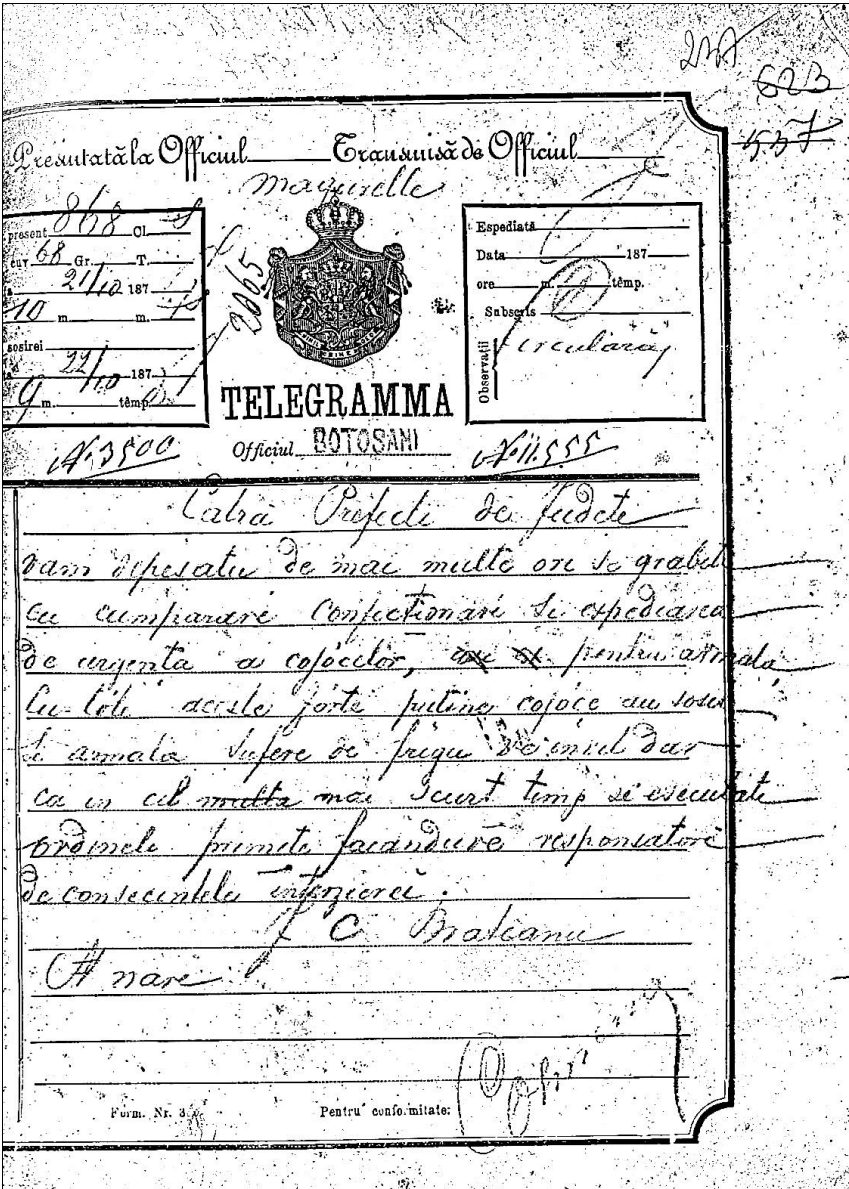 237
623
537
Presentată la Officiul Transmisă de Officiul
Magurelle
present 868 Cl.
cuv 68 Gr. T.
21/10 187
10 m. m.
sosirei
22/10 187
9 m. têmp.
2065
Espediată
Data 187
ore m. têmp.
Subscris
Observații
Circulară
TELEGRAMMA
Officiul BOTOSANI
N. 3500
No 11.555
Catra Prefecti de Judete
vam depesatu de mai multe ori se grabiti
cu cumparare Confectionare si expediarea
de urgenta a cojocelor, pentru armata
Cu tote aceste forte putine cojoce au sosit
si armata sufere de frigu Ve invit dar
ca in cel multa mai Scurt timp se esecutati
ordinele primite facanduve responsatori
de consecintele intarzierei.
I C Bratianu
Form. Nr. 3
Pentru conformitate: